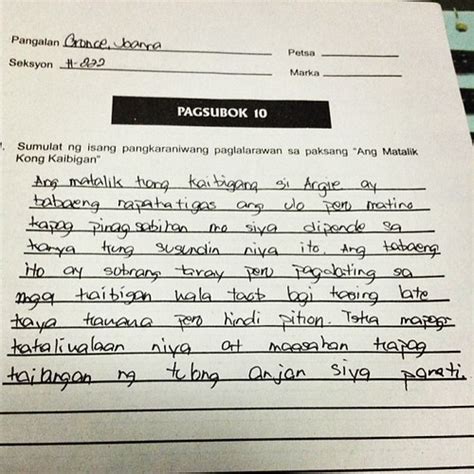 Pangalan Gronce, Joanna
Petsa
Seksyon H-222
Marka
PAGSUBOK 10
Sumulat ng isang pangkaraniwang paglalarawan sa paksang "Ang Matalik
Kong Kaibigan"
Ang matalik kong kaibigang si Argie ay
babaeng napakatigas ang ulo pero matino
kapag pinagsabihan mo siya dipende sa
kanya kung susundin niya ito. Ang babaeng
ito ay sobrang taray pero pagdating sa
mga kaibigan wala
kaya pero hindi Ito'y mapagk
katiwalaan niya at maasahan kapag
kailangan ng tulong anjan siya parati.